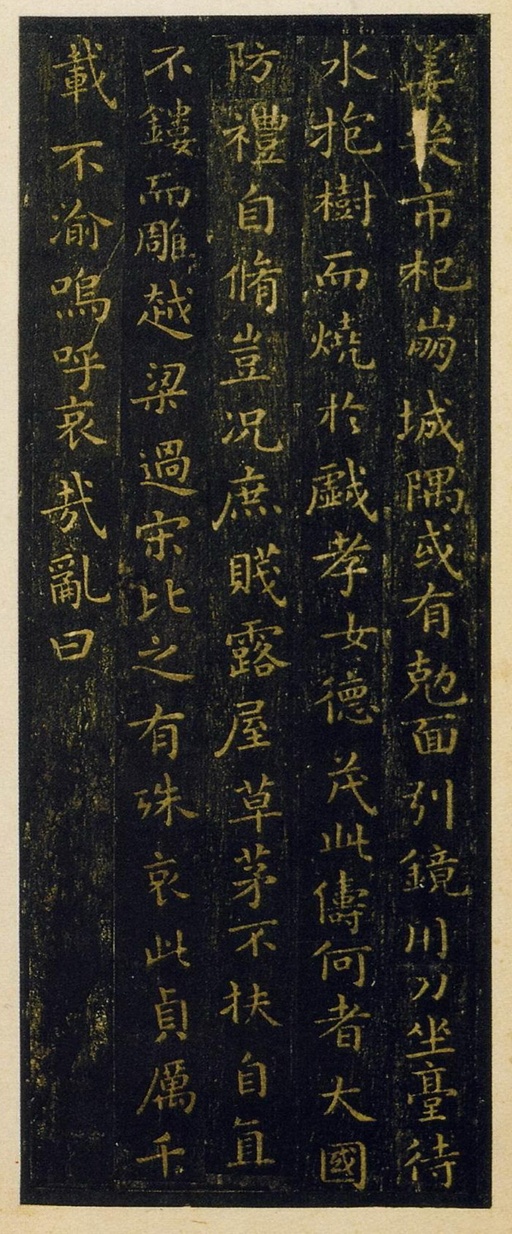 姜哭市杞崩城隅或有剋面引鏡用刀坐臺待
水抱樹而燒於戯孝女德茂此儔何者大國
防禮自脩豈况庶賤露屋草茅不扶自直
不鏤而雕越梁過宋比之有殊哀此貞厲千
載不渝嗚呼哀哉亂曰